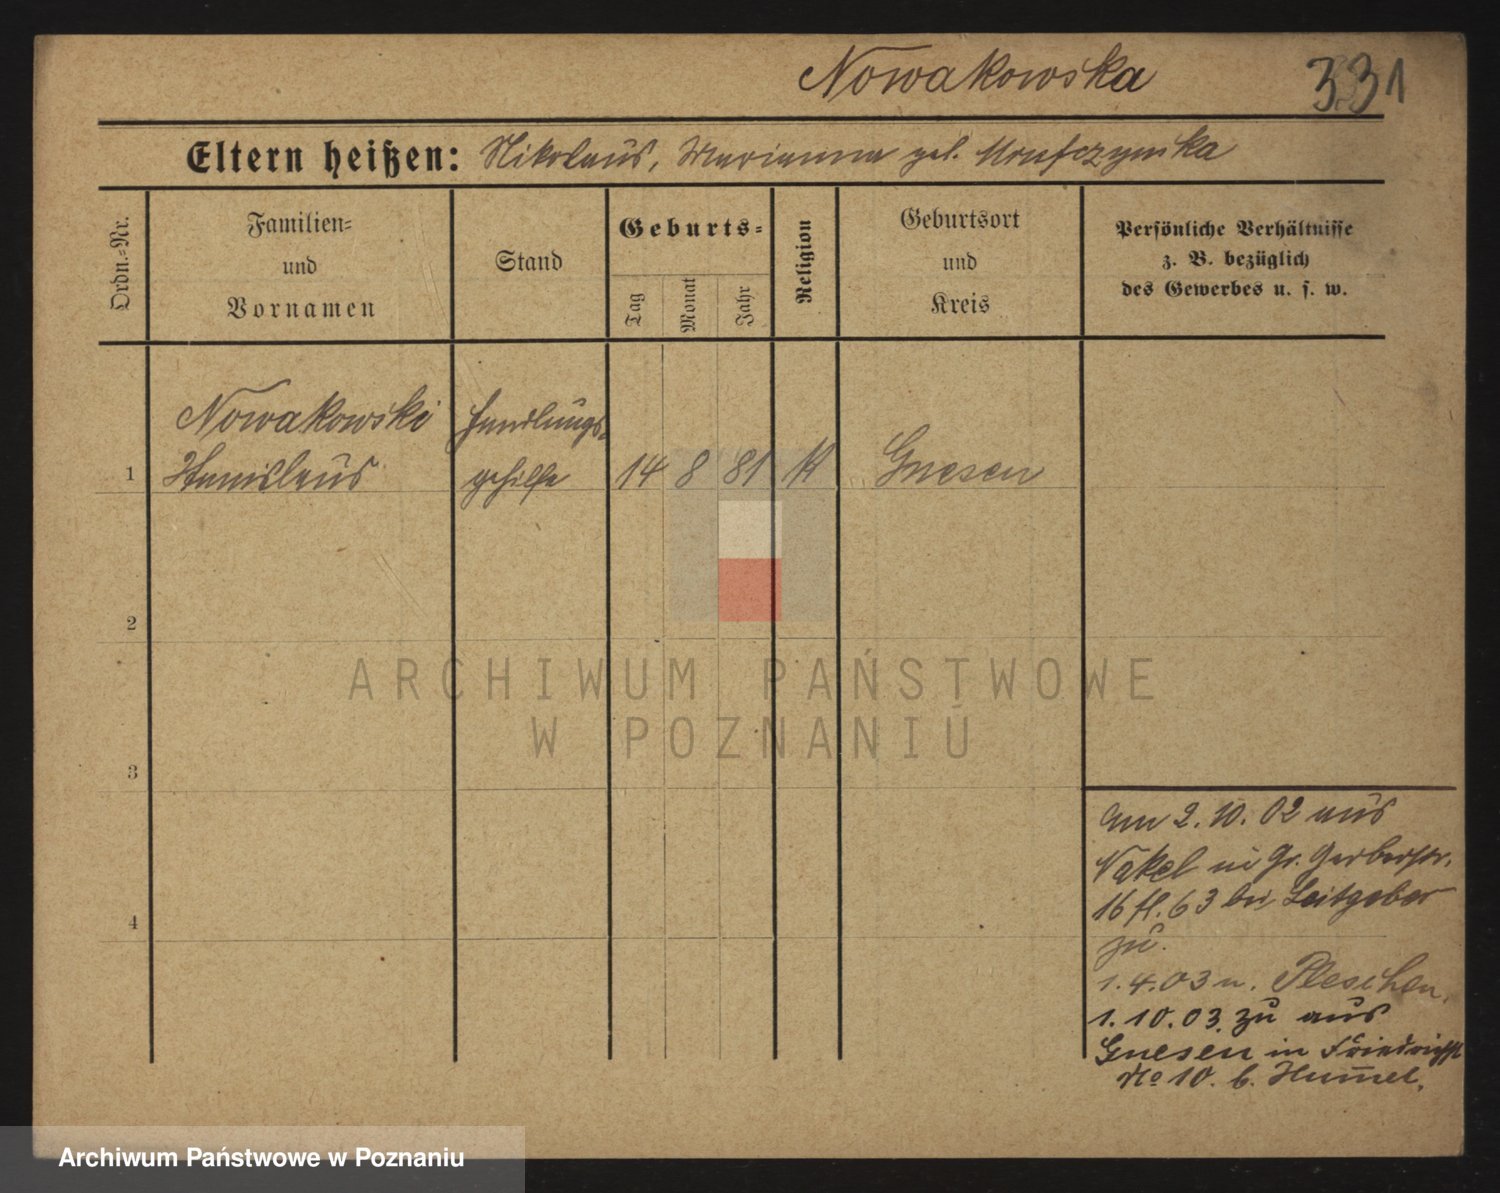 Nowakowska
331
Eltern heißen: Nikolaus, Marianna geb.
Ordn.-Nr.
Familien-
und
Vornamen
Stand
Geburts-
Tag
Monat
Jahr
Religion
Geburtsort
und
Kreis
Persönliche Verhältnisse
z. B. bezüglich
des Gewerbes u. s. w.
Nowakowski
Handlungs-
1 Stanislaus gehilfe 14 8 81 K Gnesen
2
ARCHIWUM PAŃSTWOWE
W POZNANIU
3
am 2. 10. 02 aus
Nakel in Gr. Gerberstr.
16 fl. 63 bei Leitgeber
4
zu.
1. 4. 03 n. Pleschen.
1. 10. 03. zu aus
Gnesen in Friedrichstr
No 10. b. Hummel.
Archiwum Państwowe w Poznaniu